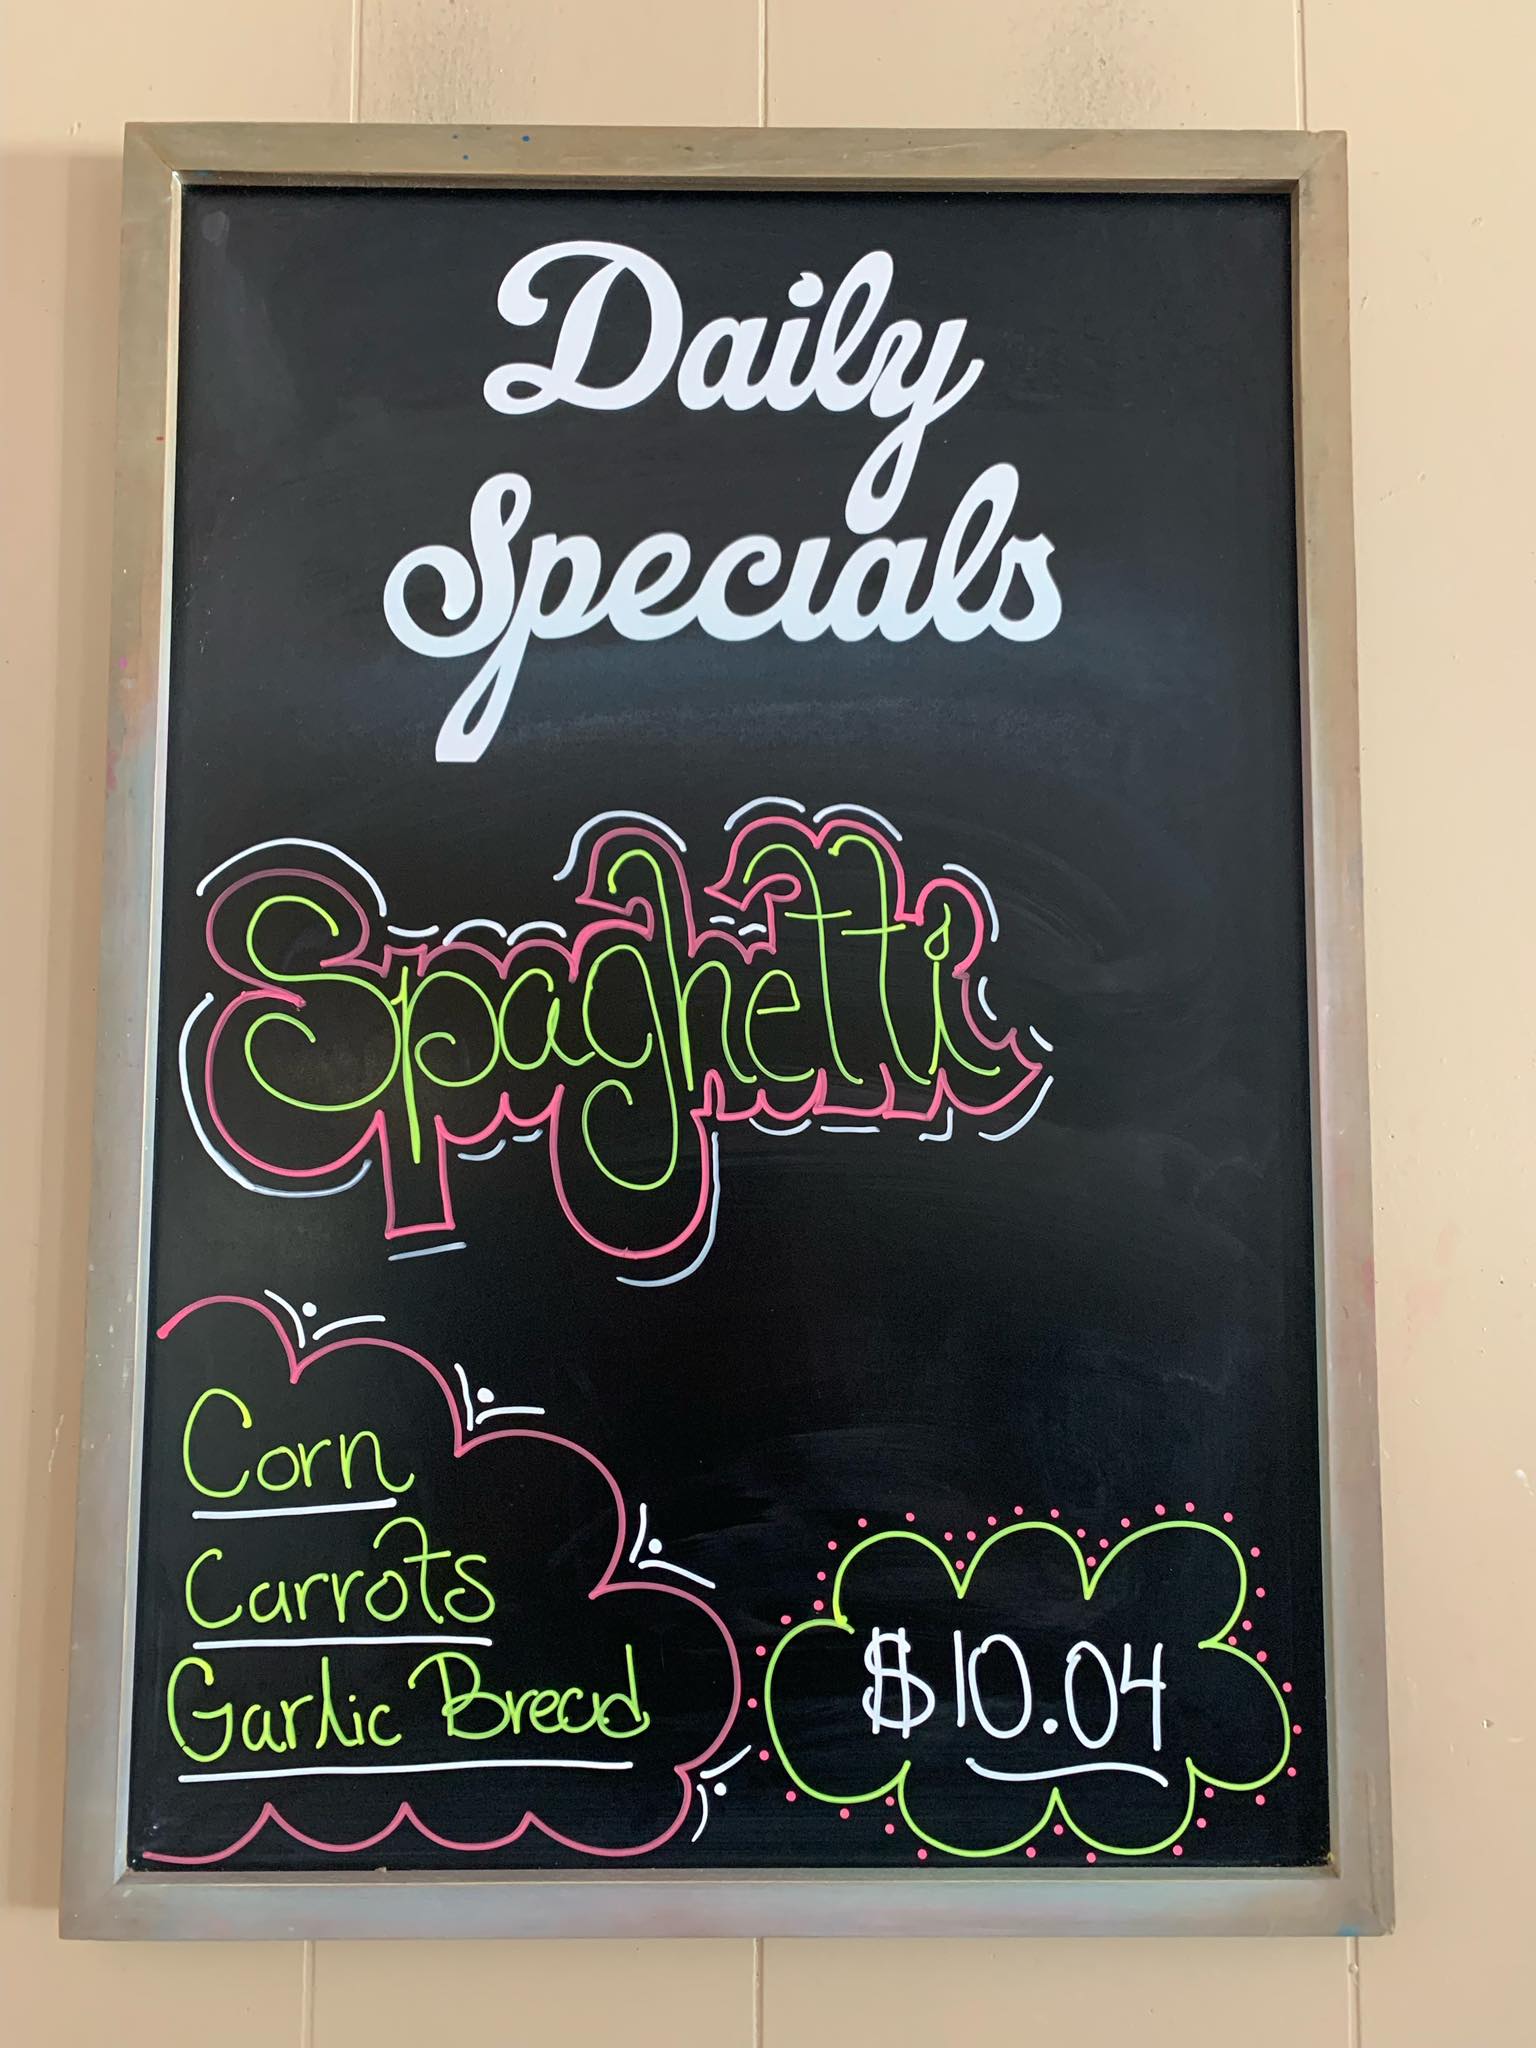 Daily
Specials
Spaghetti
Corn
Carrots
Garlic Bread
$10.04